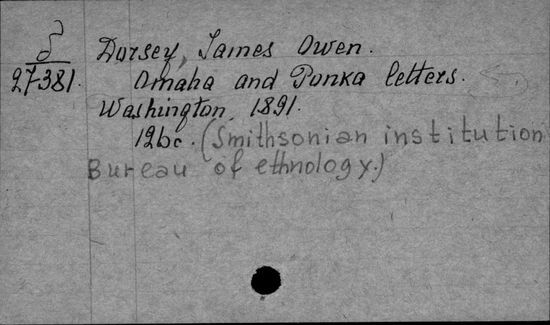 δ
27381.
Dorsey, James Owen.
Omaha and Ponka letters.
Washington, 1891.
126c. (Smithsonian institution
Bureau of ethnology.)